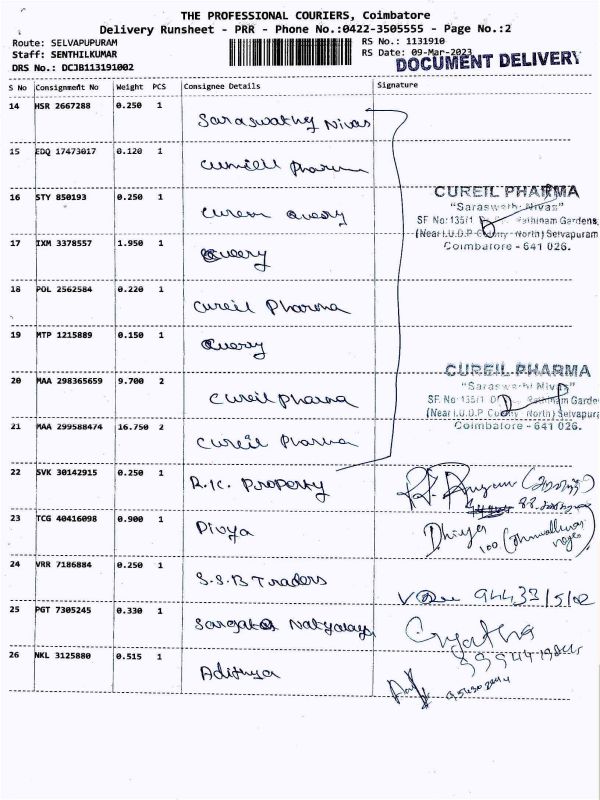 THE PROFESSIONAL COURIERS, Coimbatore
Delivery Runsheet - PRR - Phone No.:0422-3505555 - Page No.:2
Route: SELVAPUPURAM
Staff: SENTHILKUMAR
DRS No.: DCJB113191002
RS No.: 1131910
RS Date: 09-Mar-2023
DOCUMENT DELIVERY
S No Consignment No Weight PCS Consignee Details Signature
14 HSR 2667288 0.250 1 Saraswathy Nivas
15 EDQ 17473017 0.120 1 Pharma
16 STY 850193 0.250 1
CUREIL PHARMA
"Saraswathi Nivas"
SF No:135/1 Rathinam Gardens,
(Near I.U.D.P Colony North) Selvapuram
Coimbatore - 641 026.
17 IXM 3378557 1.950 1
18 POL 2562584 0.220 1 Cureil Pharma
19 MTP 1215889 0.150 1
20 MAA 298365659 9.700 2 Cureil pharma
CUREIL PHARMA
"Saraswathi Nivas"
SF. No:135/1 Rathinam Garde
(Near I.U.D.P Colony North) Selvapura
Coimbatore - 641 026.
21 MAA 299588474 16.750 2 Cureil Pharma
22 SVK 30142915 0.250 1 R.K. Property
23 TCG 40416098 0.900 1 Divya Dhivya
24 VRR 7186884 0.250 1 S.S.B Traders
25 PGT 7305245 0.330 1
26 NKL 3125880 0.515 1 Adithya